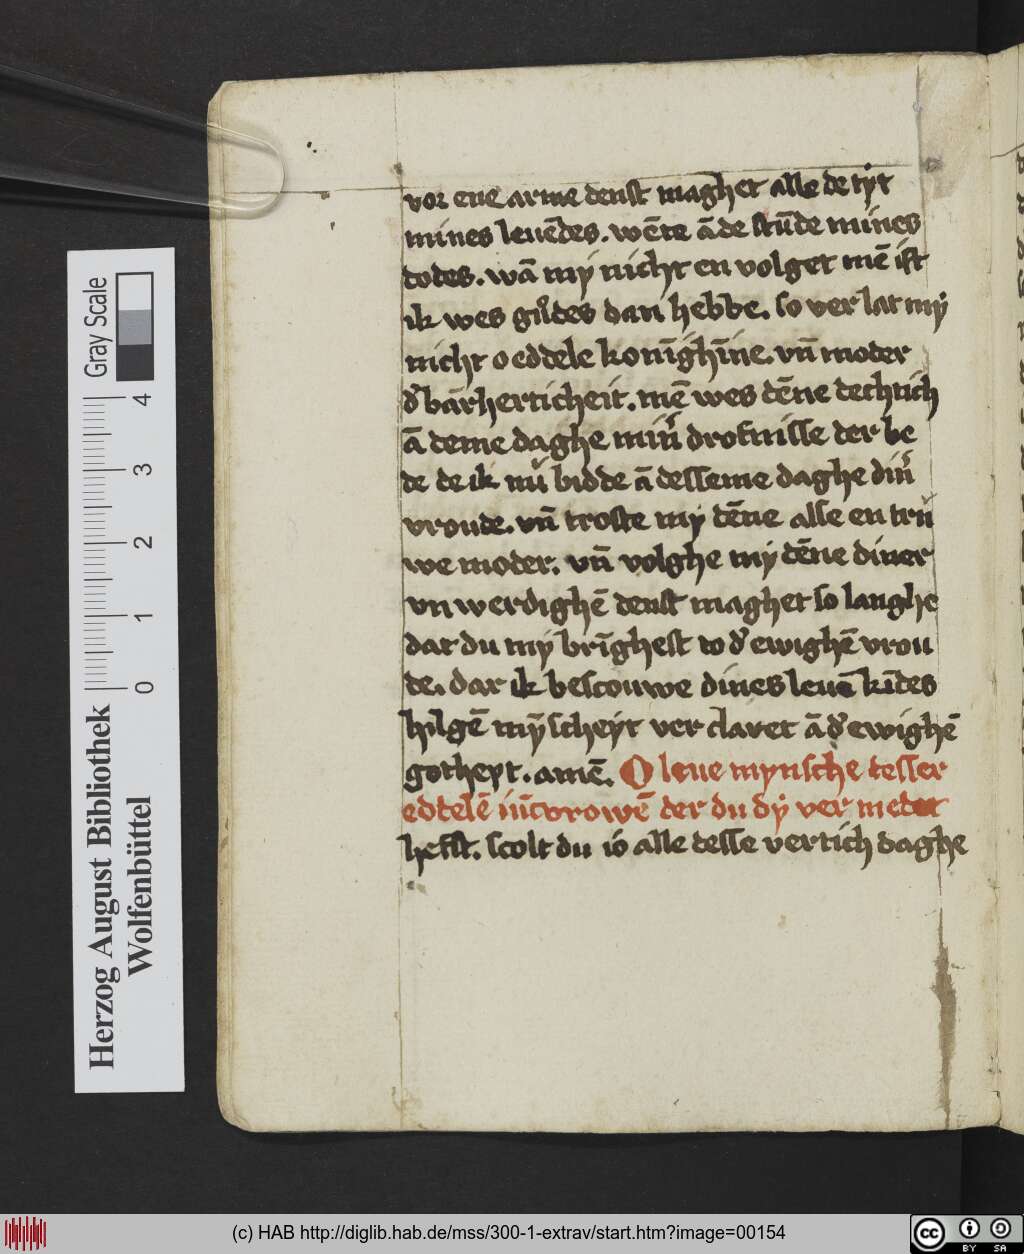 vor ene arme denst maghet alle de tyt
mines leuēdes. wēte ā de stūde mines
dodes. wā my nicht en volget mē ist
ik wes gudes dan hebbe. so ver lat my
nicht o eddele konīghīne. vn̄ moder
d' barherticheit. mē wes dēne dechtich
ā deme daghe mīn' drofnisse der be
de de ik nu bidde ā desseme daghe din'
vroude. vn̄ troste my dēne alse en tru
we moder. vn̄ volghe my dēne diner
vnwerdighē denst maghet so langhe
dat du my brīghest to d' ewighēvrou
de. dar ik bescouwe dines leuē kīdes
hilgē mȳscheyt ver claret ā d' ewighē
gotheyt. amē. O leue mynsche desser
eddelē iūcvrowē der du dy ver medet
hefst. scolt du io alle desse vertich daghe
Gray Scale
4
3
2
1
0
Herzog August Bibliothek
Wolfenbüttel
(c) HAB http://diglib.hab.de/mss/300-1-extrav/start.htm?image=00154
cc
BY SA